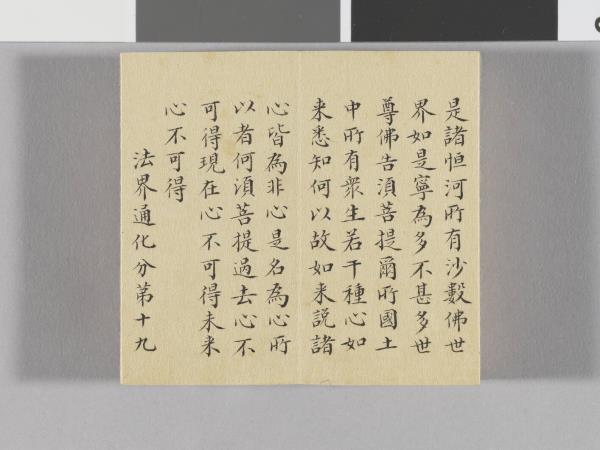 是諸恒河所有沙數佛世
界如是寧為多不甚多世
尊佛告湏菩提爾所國土
中所有衆生若干種心如
来悉知何以故如来説諸
心皆為非心是名為心所
以者何湏菩提過去心不
可得現在心不可得未来
心不可得
法界通化分第十九